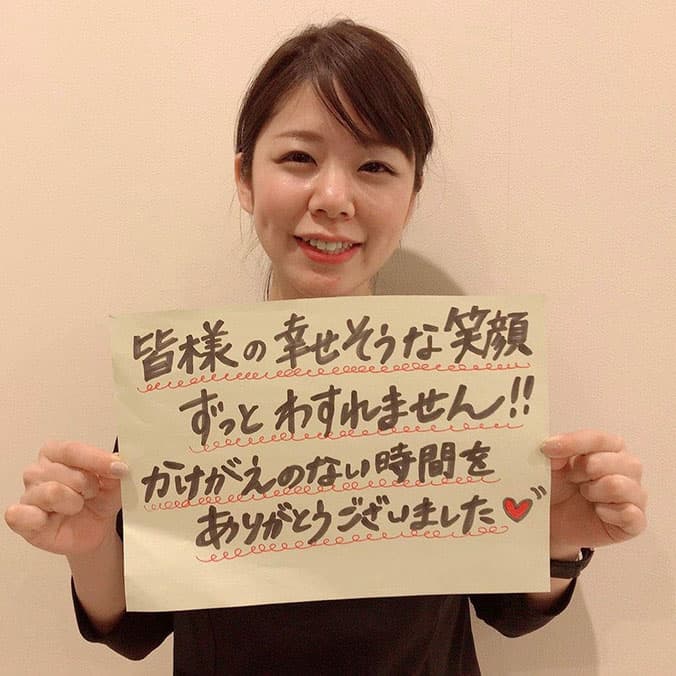 皆様の幸せそうな笑顔
ずっとわすれません!!
かけがえのない時間を
ありがとうございました♥